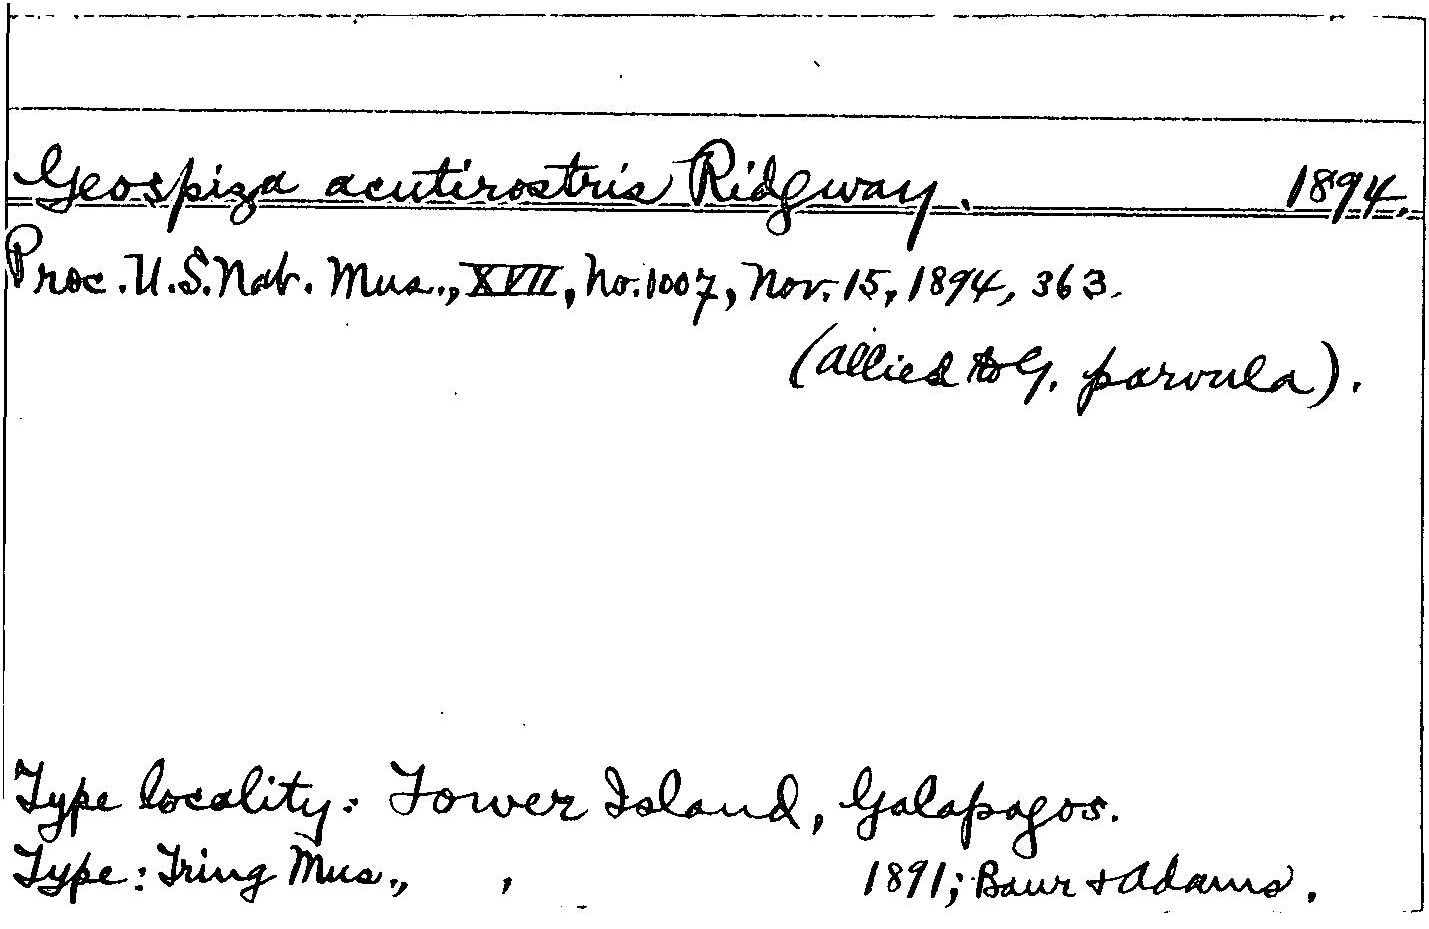 Geospiza acutirostris Ridgway. 1894.
Proc. U.S. Nat. Mus., XVII, No. 1007, Nov. 15, 1894, 363.
(allied to G. parvula).
Type locality: Tower Island, Galapagos.
Type: Tring Mus., , 1891; Baur + Adams.